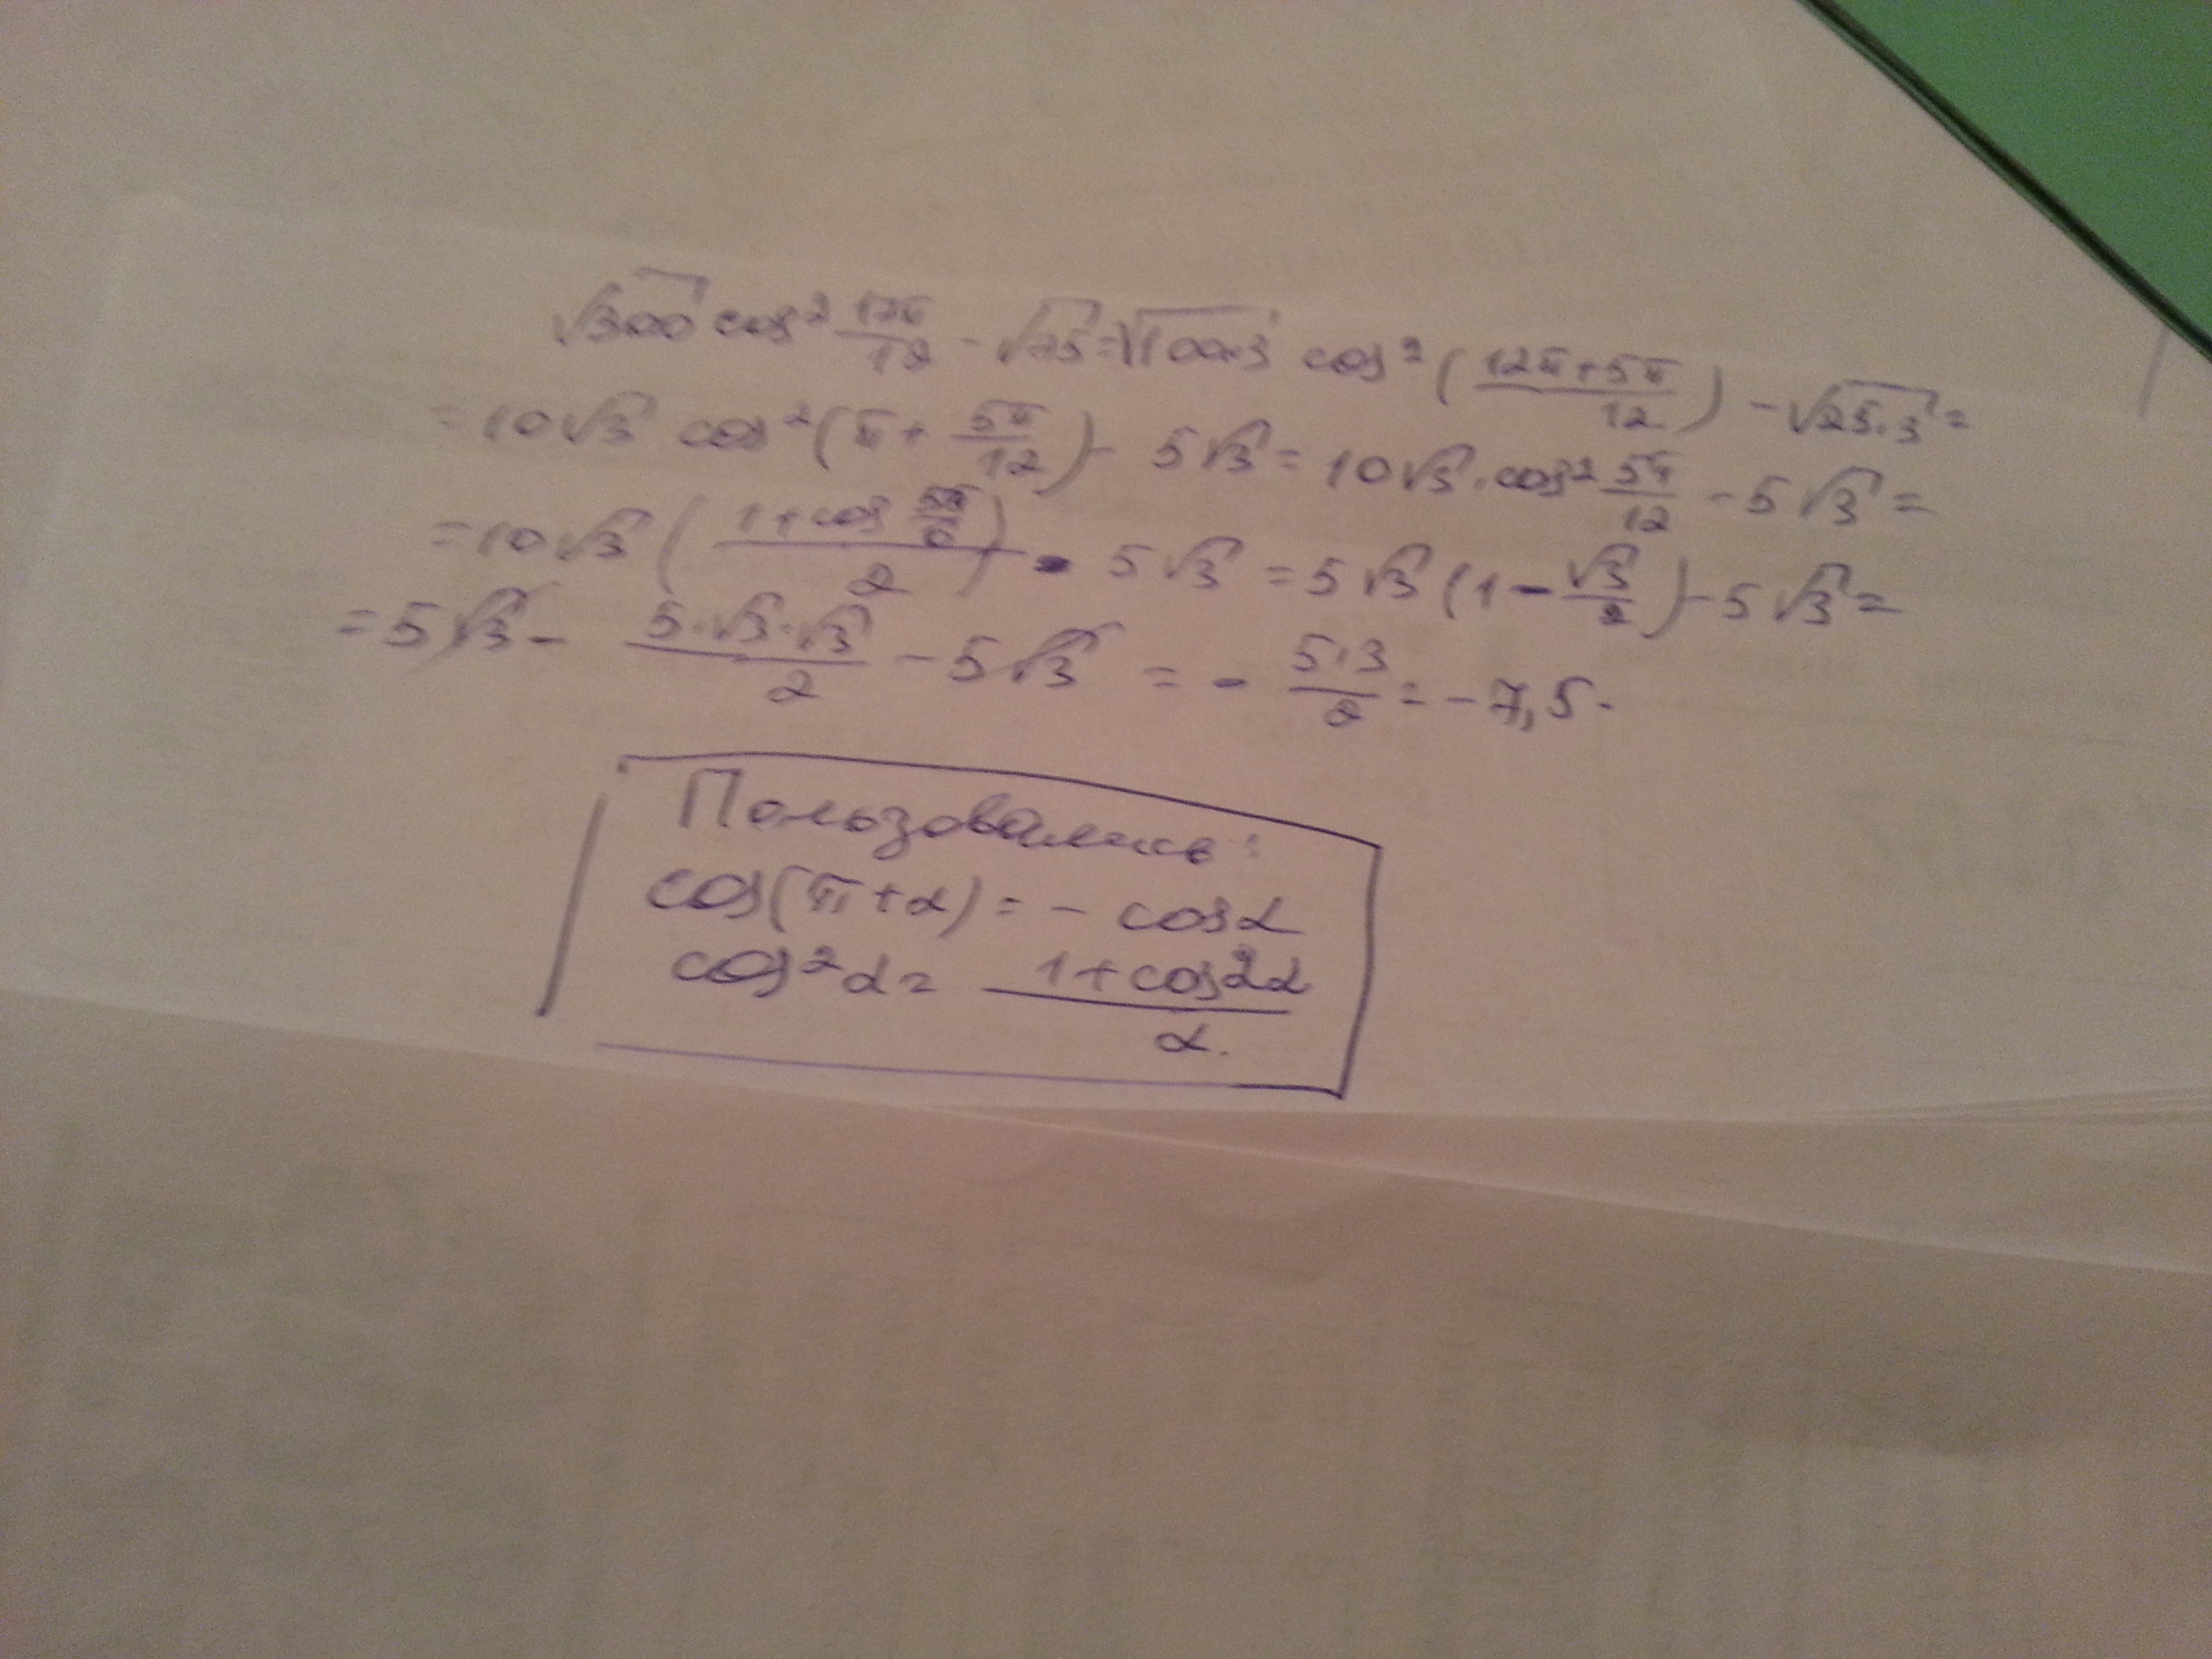 √300 cos² 12π/12 - √75 = √100·3 cos² (12π+5π/12) - √25·3 =
= 10√3 cos² (π + 5π/12) - 5√3 = 10√3 · cos² 5π/12 - 5√3 =
= 10√3 (1 + cos 5π/6 / 2) - 5√3 = 5√3 (1 - √3/2) - 5√3 =
= 5√3 - 5·√3·√3/2 - 5√3 = - 5·3/2 = -7,5.
Пользовались:
cos(π+α) = - cosα
cos²α = 1+cos2α/2.